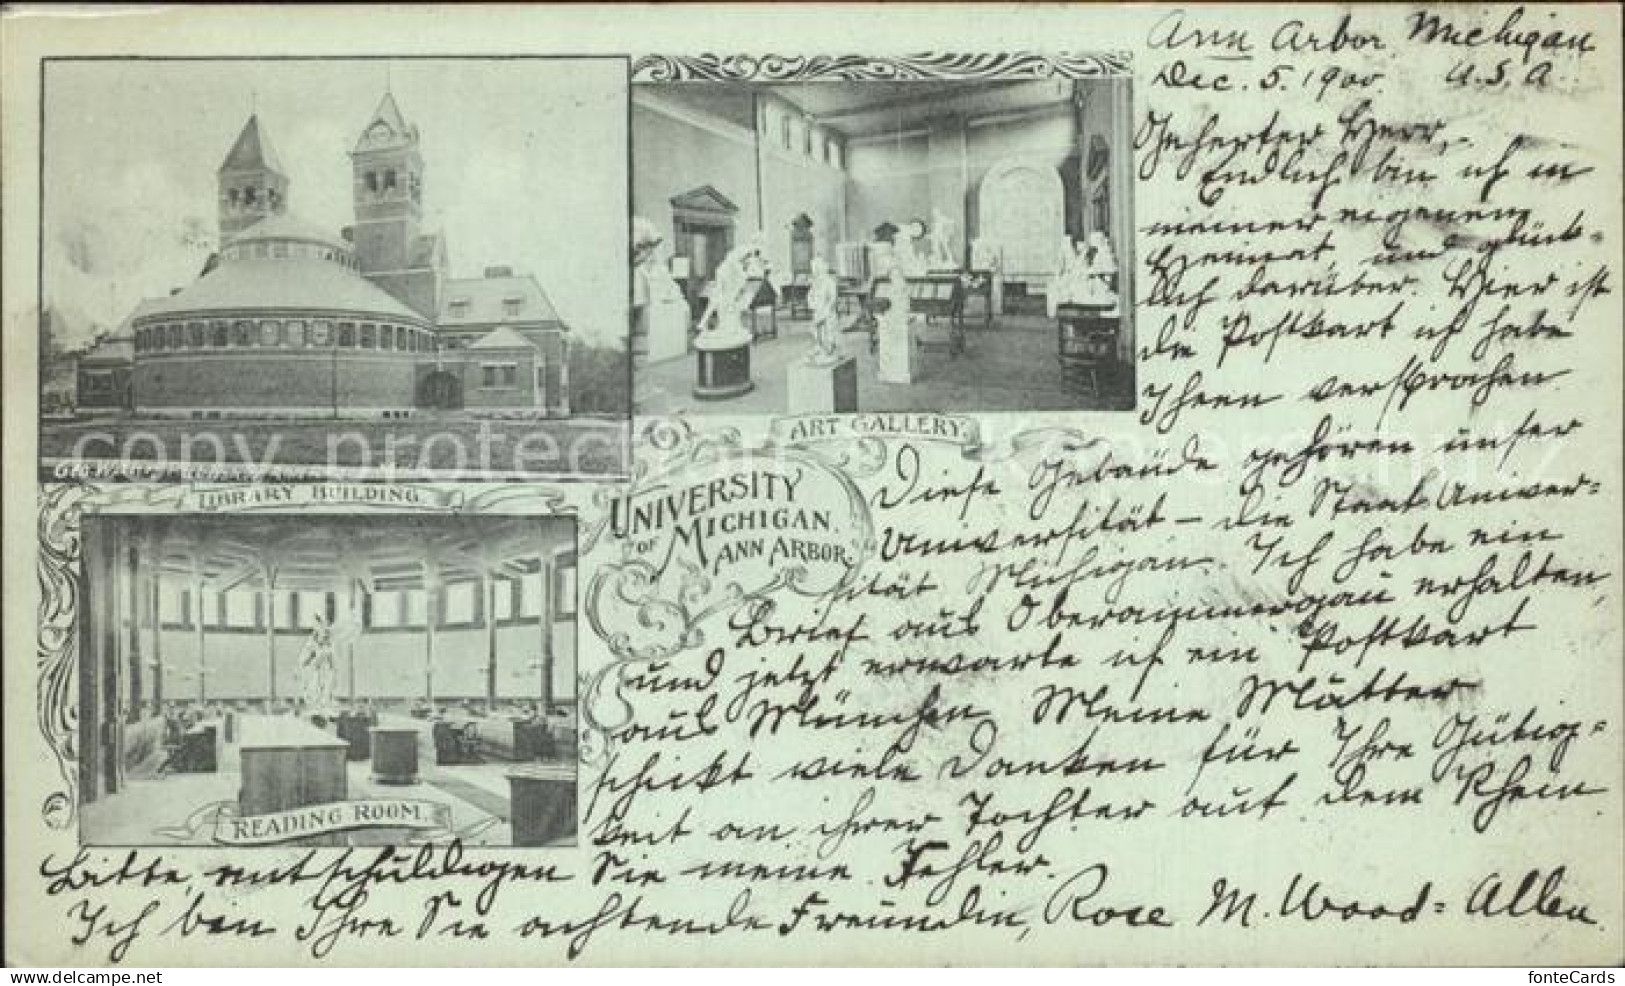 Ann Arbor, Michigan
Dec. 5. 1900. U.S.A.
Geherter Herr,-
Endlich bin ich in
meiner eigenem
Heimat, und glück-
lich darüber. Hier ist
die Postkart ich habe
Ihnen versprochen
ART GALLERY.
LIBRARY BUILDING.
UNIVERSITY
OF MICHIGAN,
ANN ARBOR.
READING ROOM.
Diese Gebäude gehören unser
Universität – die Staat Univer=
sität Michigan. Ich habe ein
Brief aus Oberammergau erhalten,
und jetzt erwarte ich ein Postkart
aus München Meine Mütter
schickt viele Danken für Ihre Gütig=
keit an ihrer Tochter auf dem Rhein.
Bitte, entschuldigen Sie meine Fehler.
Ich bin Ihre Sie achtende Freundin, Rose M. Wood=Allen.
copy protection
https://www.delcampe.net
fonteCards